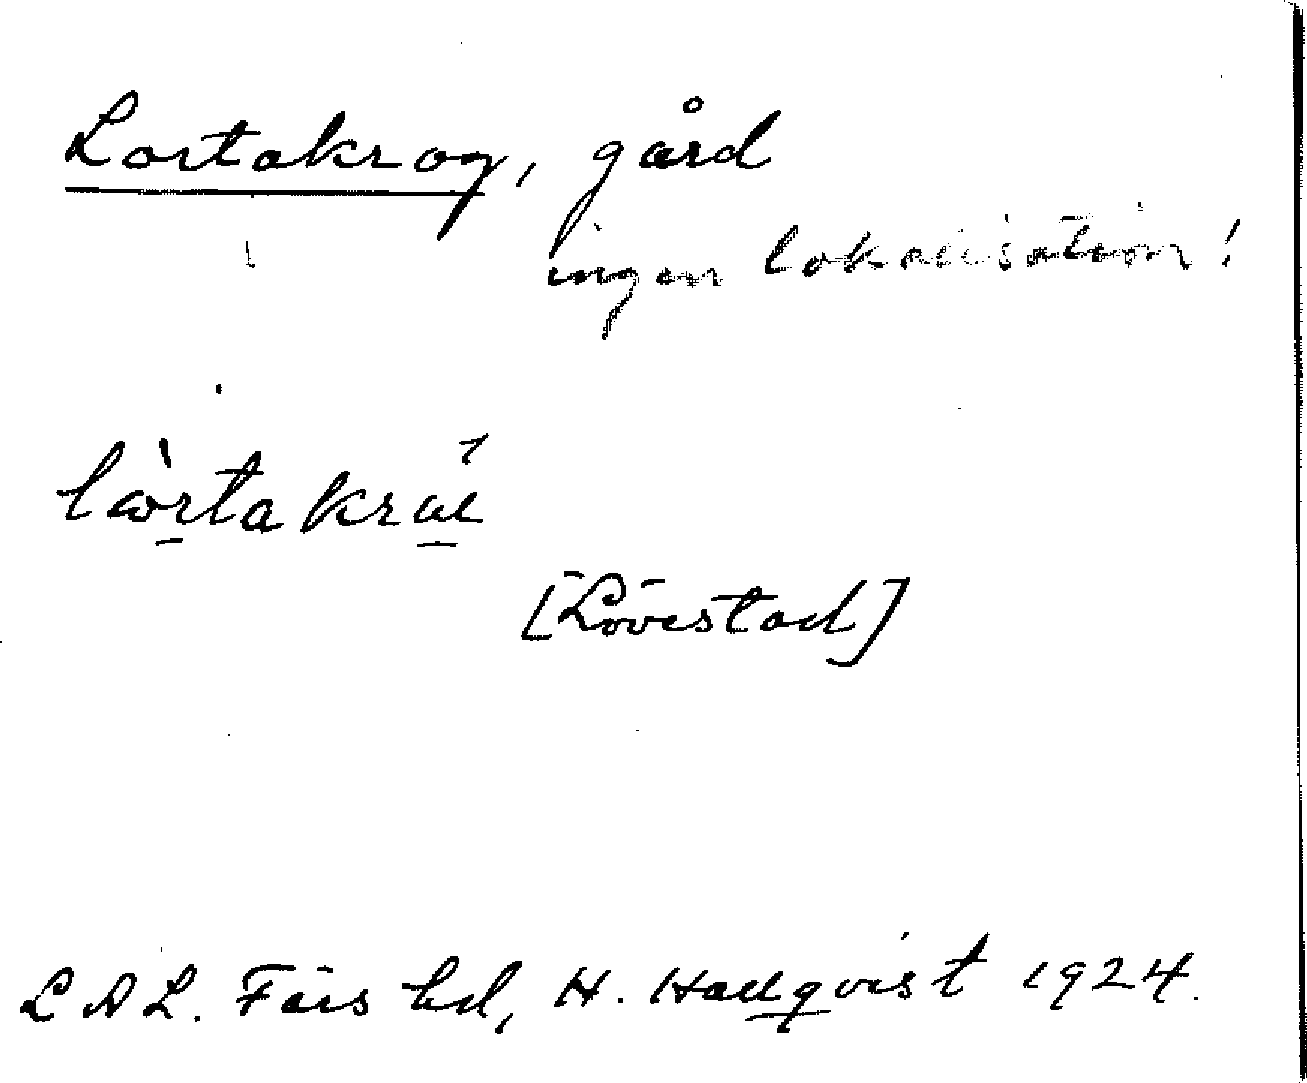 Lortakrog, gård
ingen lokalisation!
[Lövestad]
LAL. Färs hd, H. Hallqvist 1924.